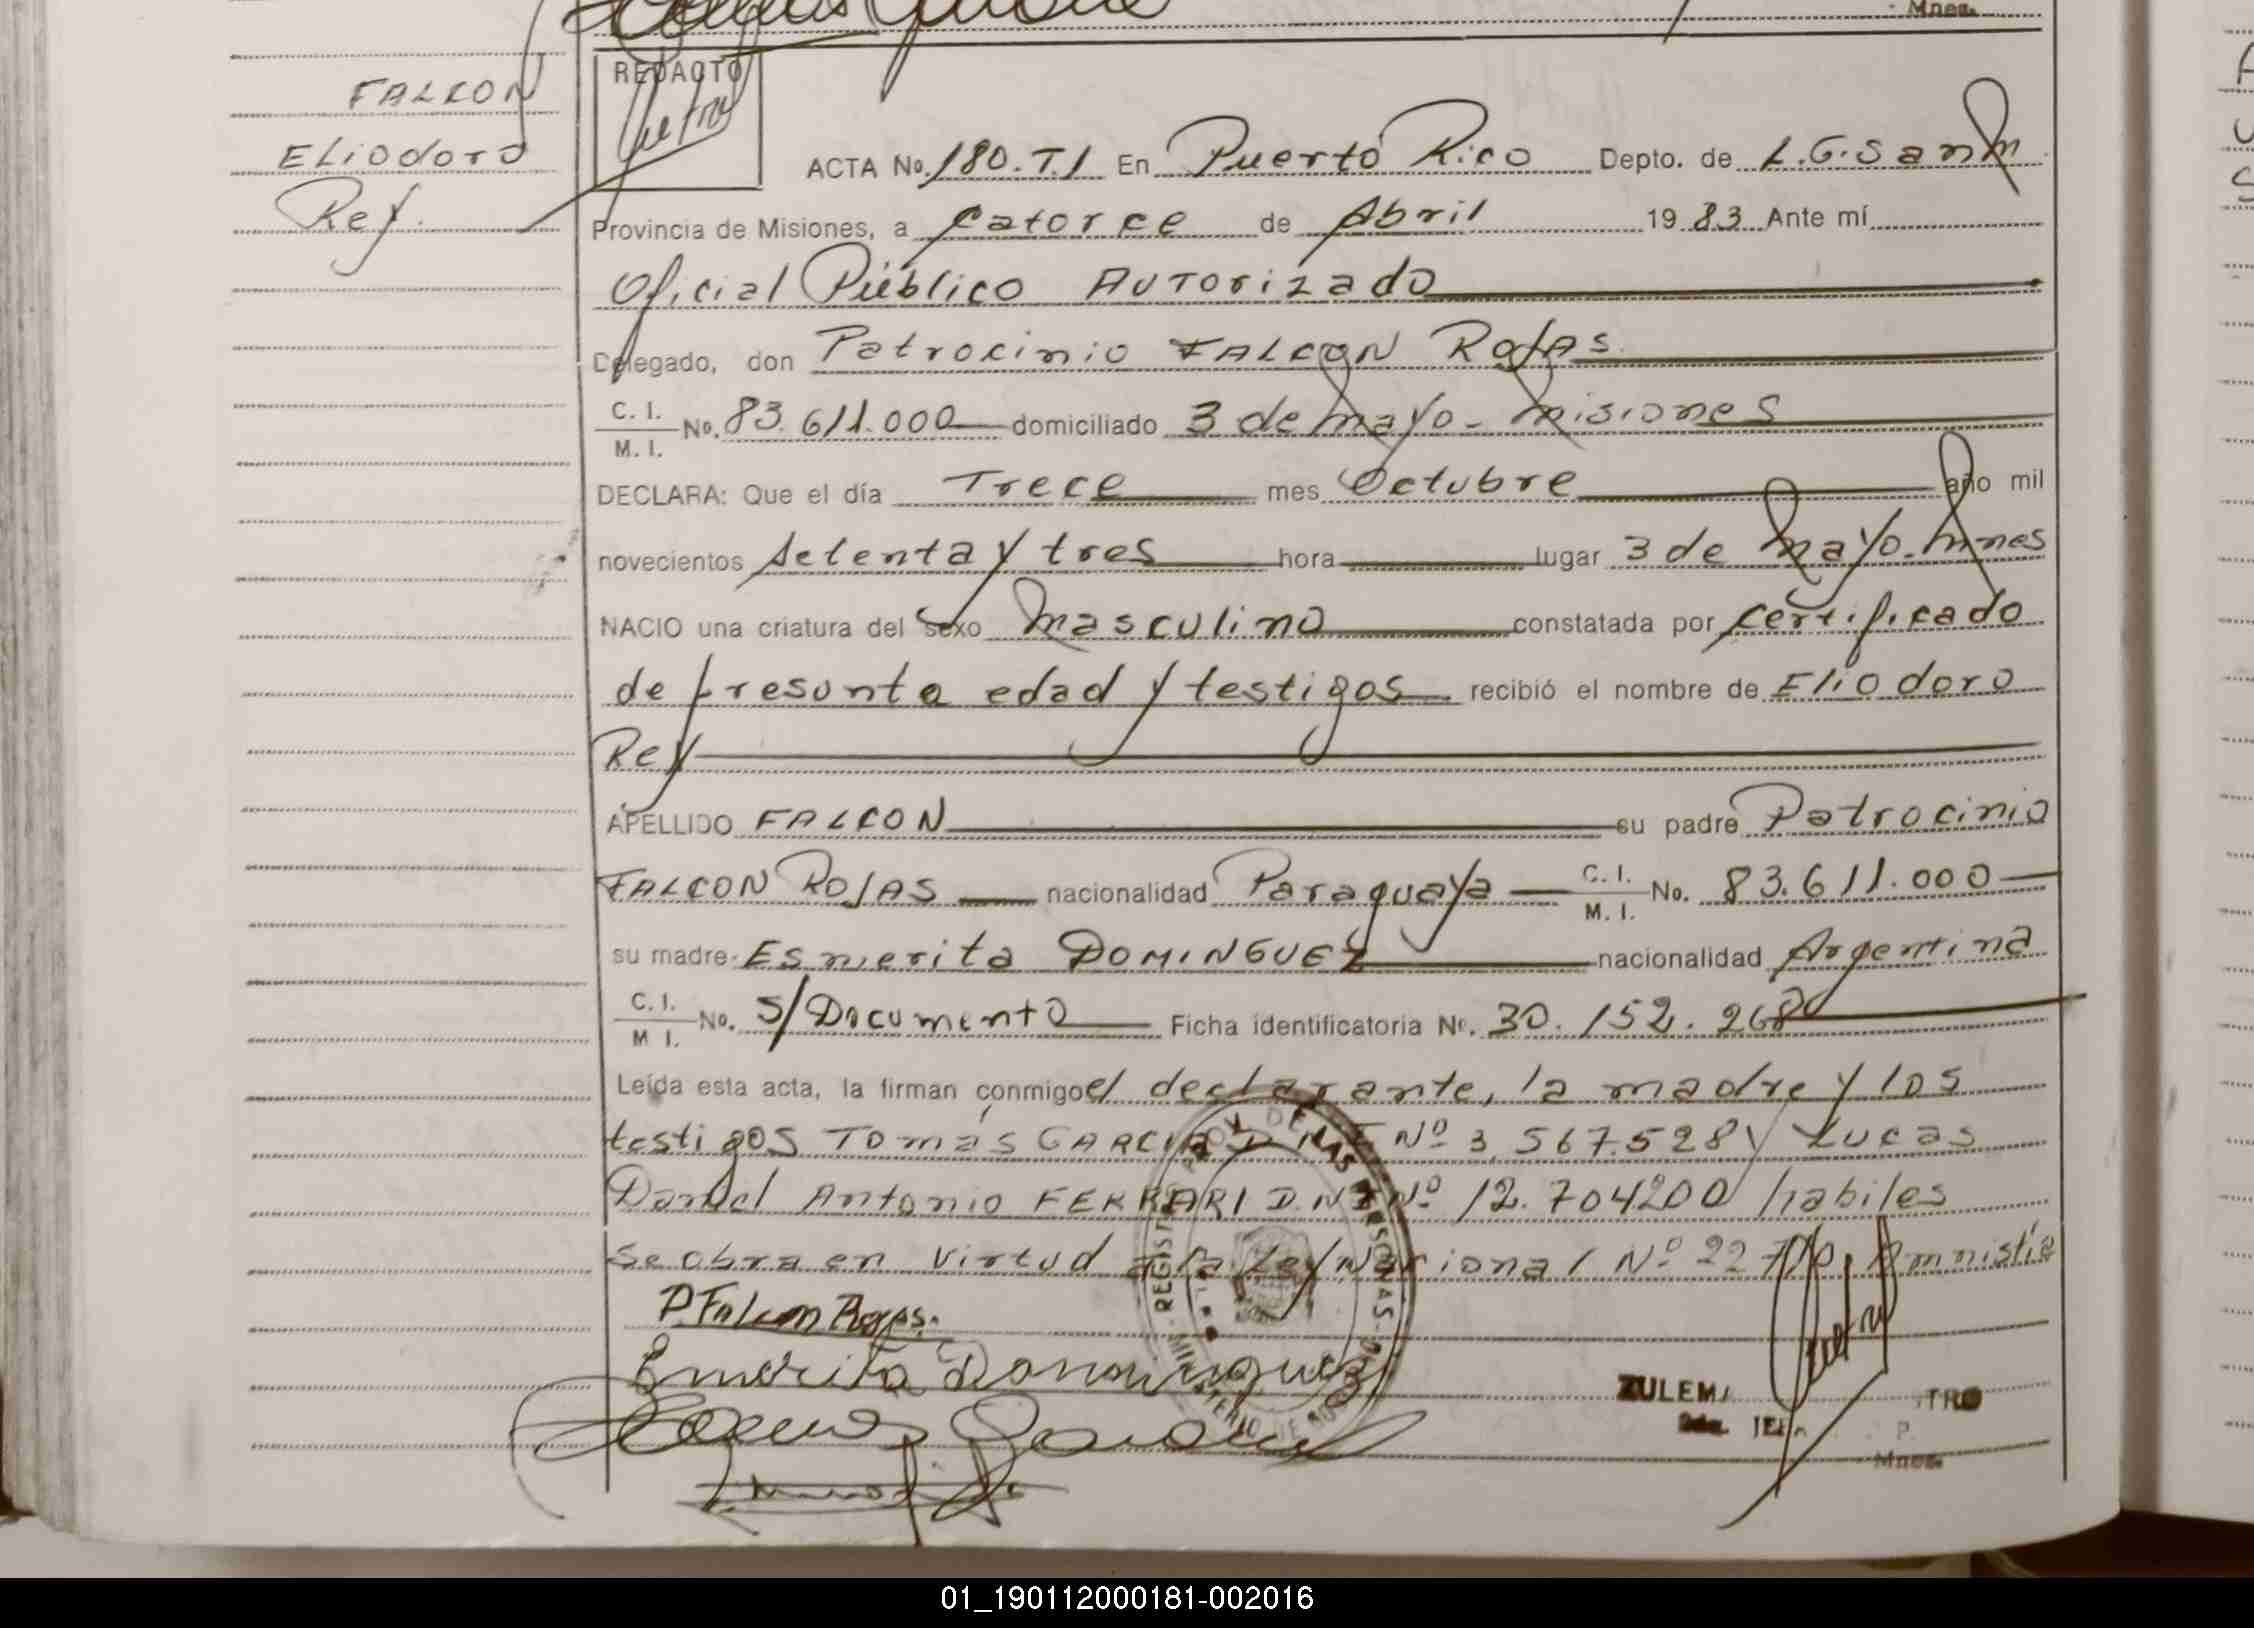 Mnes.
REDACTO
FALCON
ELIODORO
Rey.
ACTA No. 180.T.I En Puerto Rico Depto. de L.G.San M
Provincia de Misiones, a catorce de Abril 1983 Ante mí
Oficial Público AUTorizado
Delegado, don Patrocinio FALCON ROJAS.
C. I.
M. I. No. 83.611.000 domiciliado 3 de mayo - misiones
DECLARA: Que el día Trece mes Octubre año mil
novecientos setenta y tres hora lugar 3 de mayo. Mnes
NACIO una criatura del sexo masculino constatada por certificado
de presunta edad y testigos recibió el nombre de Eliodoro
Rey
APELLIDO FALCON su padre Patrocinio
FALCON ROJAS nacionalidad Paraguaya C. I. M. I. No. 83.611.000
su madre Esmerita DOMINGUEZ nacionalidad Argentina
C. I. M I. No. S/Documento Ficha identificatoria No. 30.152.268
Leída esta acta, la firman conmigo el declarante, la madre y los
testigos Tomás GARCIA D.N.I Nº 3.567.528 y Lucas
Daniel Antonio FERRARI D.NI Nº 12.704200 habiles
Se obra en virtud a la Ley Nacional Nº 22 Amnistia
P. Falcon Rojas.
Emerita Dominguez
ZULEMA TRO
2da. JEF P.
Mnes.
01_190112000181-002016